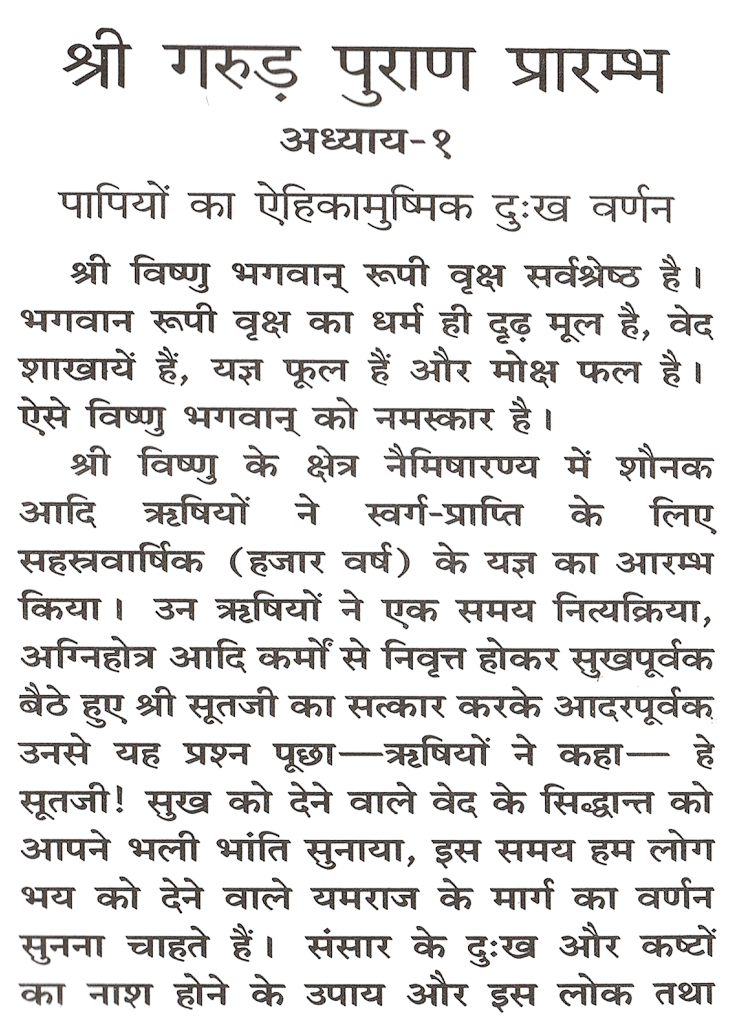 श्री गरुड़ पुराण प्रारम्भ
अध्याय-१
पापियों का ऐहिकामुष्मिक दुःख वर्णन
श्री विष्णु भगवान् रूपी वृक्ष सर्वश्रेष्ठ है।
भगवान रूपी वृक्ष का धर्म ही दृढ़ मूल है, वेद
शाखायें हैं, यज्ञ फूल हैं और मोक्ष फल है।
ऐसे विष्णु भगवान् को नमस्कार है।
श्री विष्णु के क्षेत्र नैमिषारण्य में शौनक
आदि ऋषियों ने स्वर्ग-प्राप्ति के लिए
सहस्त्रवार्षिक (हजार वर्ष) के यज्ञ का आरम्भ
किया। उन ऋषियों ने एक समय नित्यक्रिया,
अग्निहोत्र आदि कर्मों से निवृत्त होकर सुखपूर्वक
बैठे हुए श्री सूतजी का सत्कार करके आदरपूर्वक
उनसे यह प्रश्न पूछा—ऋषियों ने कहा— हे
सूतजी! सुख को देने वाले वेद के सिद्धान्त को
आपने भली भांति सुनाया, इस समय हम लोग
भय को देने वाले यमराज के मार्ग का वर्णन
सुनना चाहते हैं। संसार के दुःख और कष्टों
का नाश होने के उपाय और इस लोक तथा